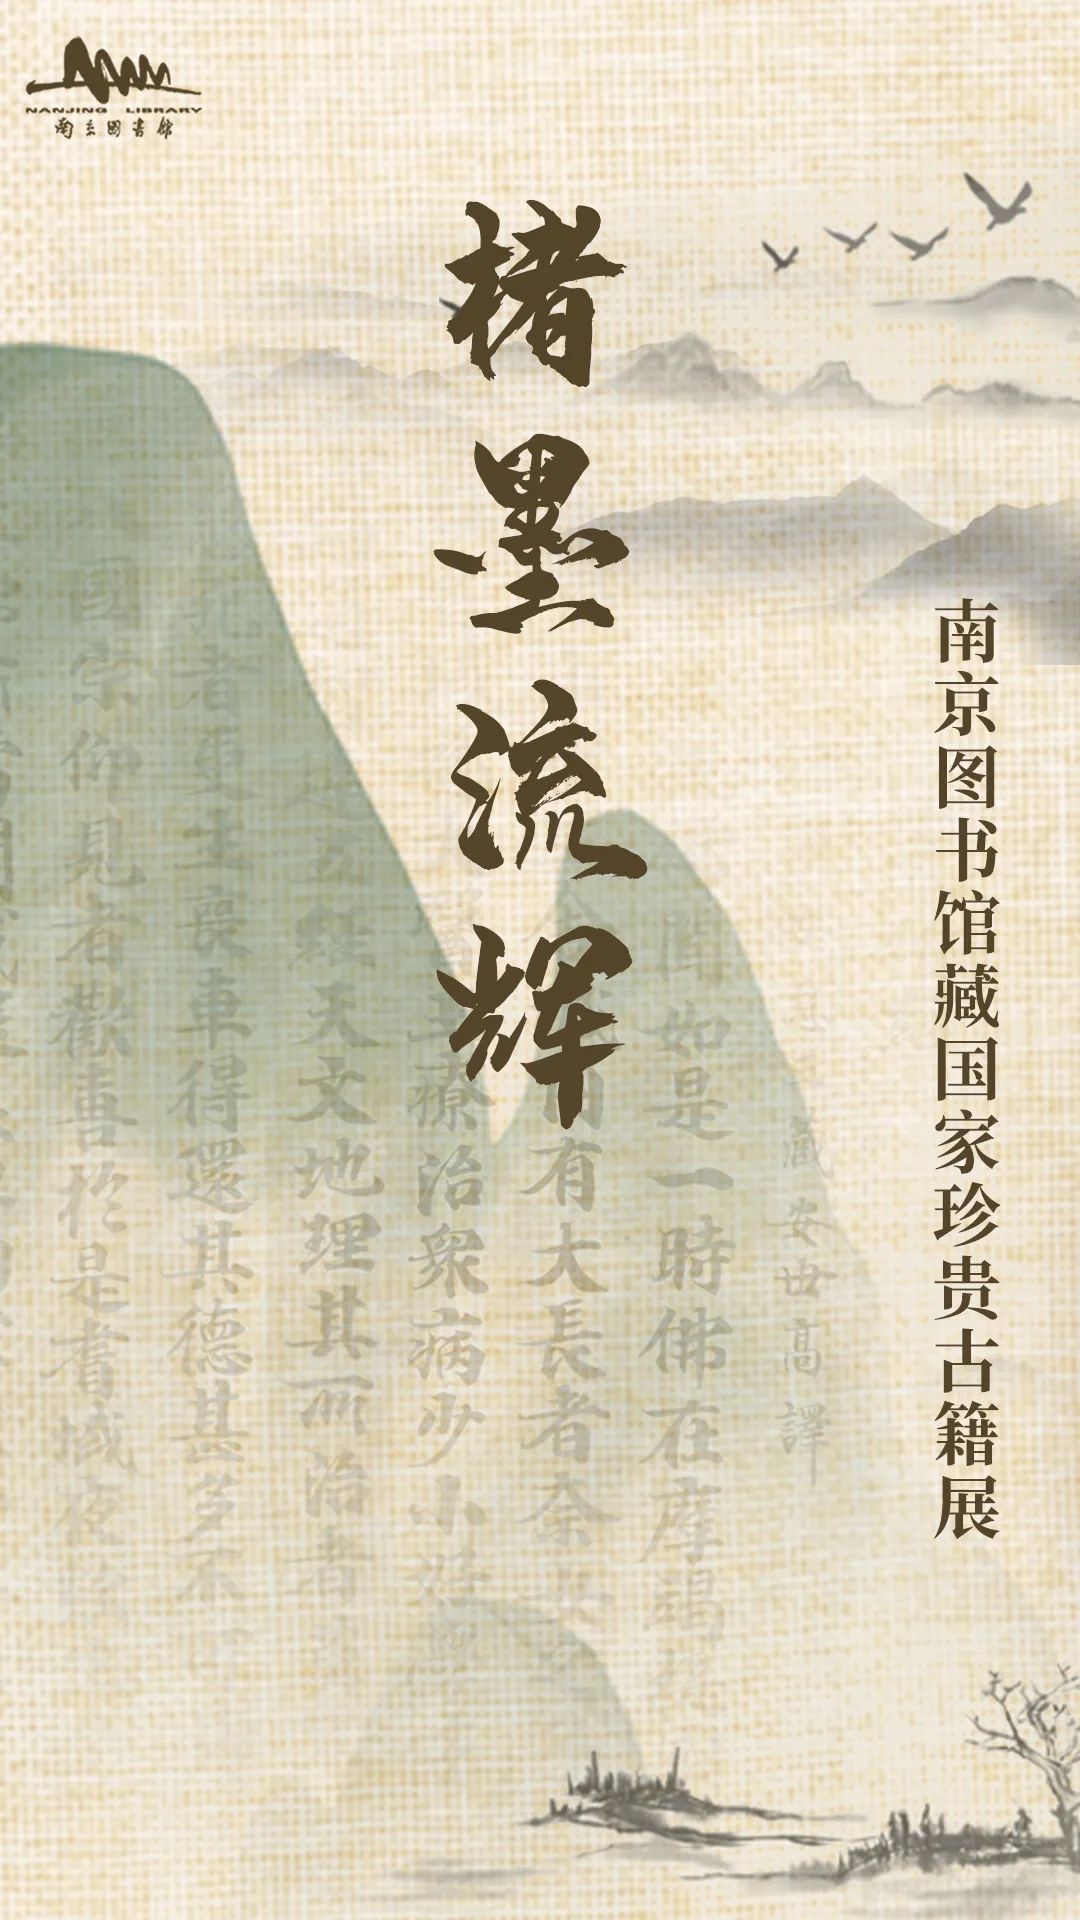 NANJING LIBRARY
南京图書館
楮墨流辉
南京图书馆藏国家珍贵古籍展
藏安世高譯
聞如是一時佛在摩竭
有大長者奈女
療治衆病少小
經天文地理其所治者
者更生喪車得還其德甚多不可
國宗仰見者歡喜於是耆域夜